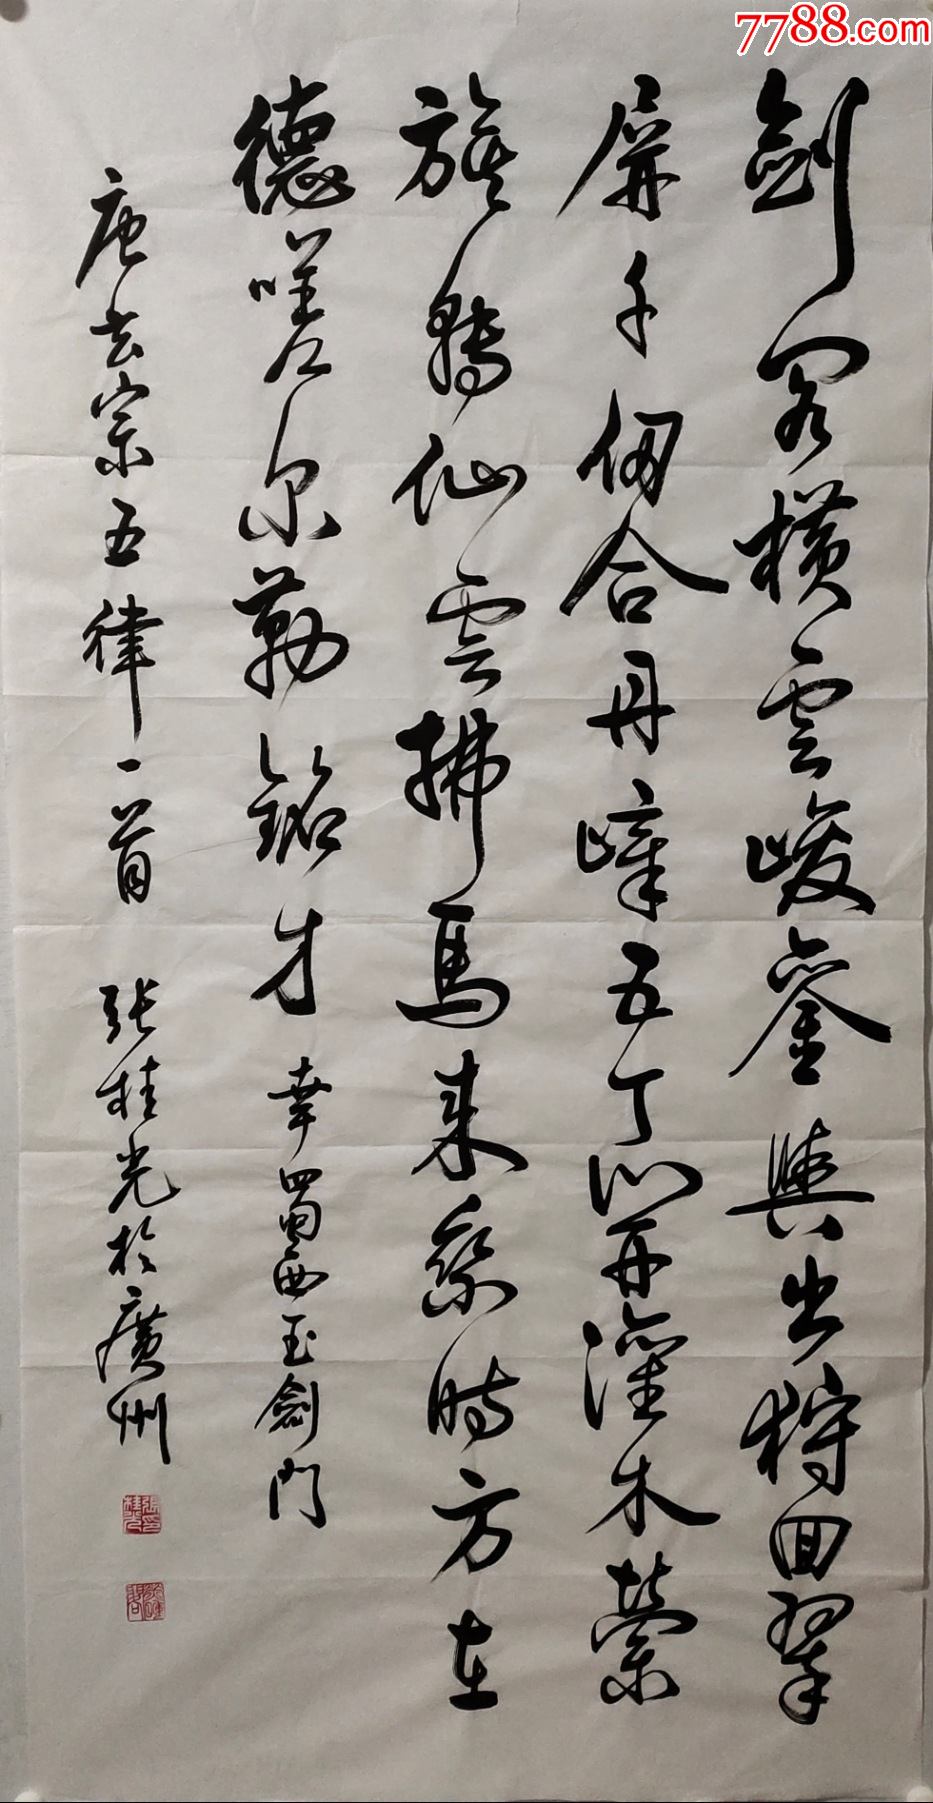 7788.com
劍阁橫雲峻鑾輿出狩回翠
屏千仞合丹嶂五丁開灌木縈
旗轉仙雲拂馬來乘時方在
德嗟尔勒銘才 幸蜀西至劍門
唐玄宗五律一首 張桂光於廣州